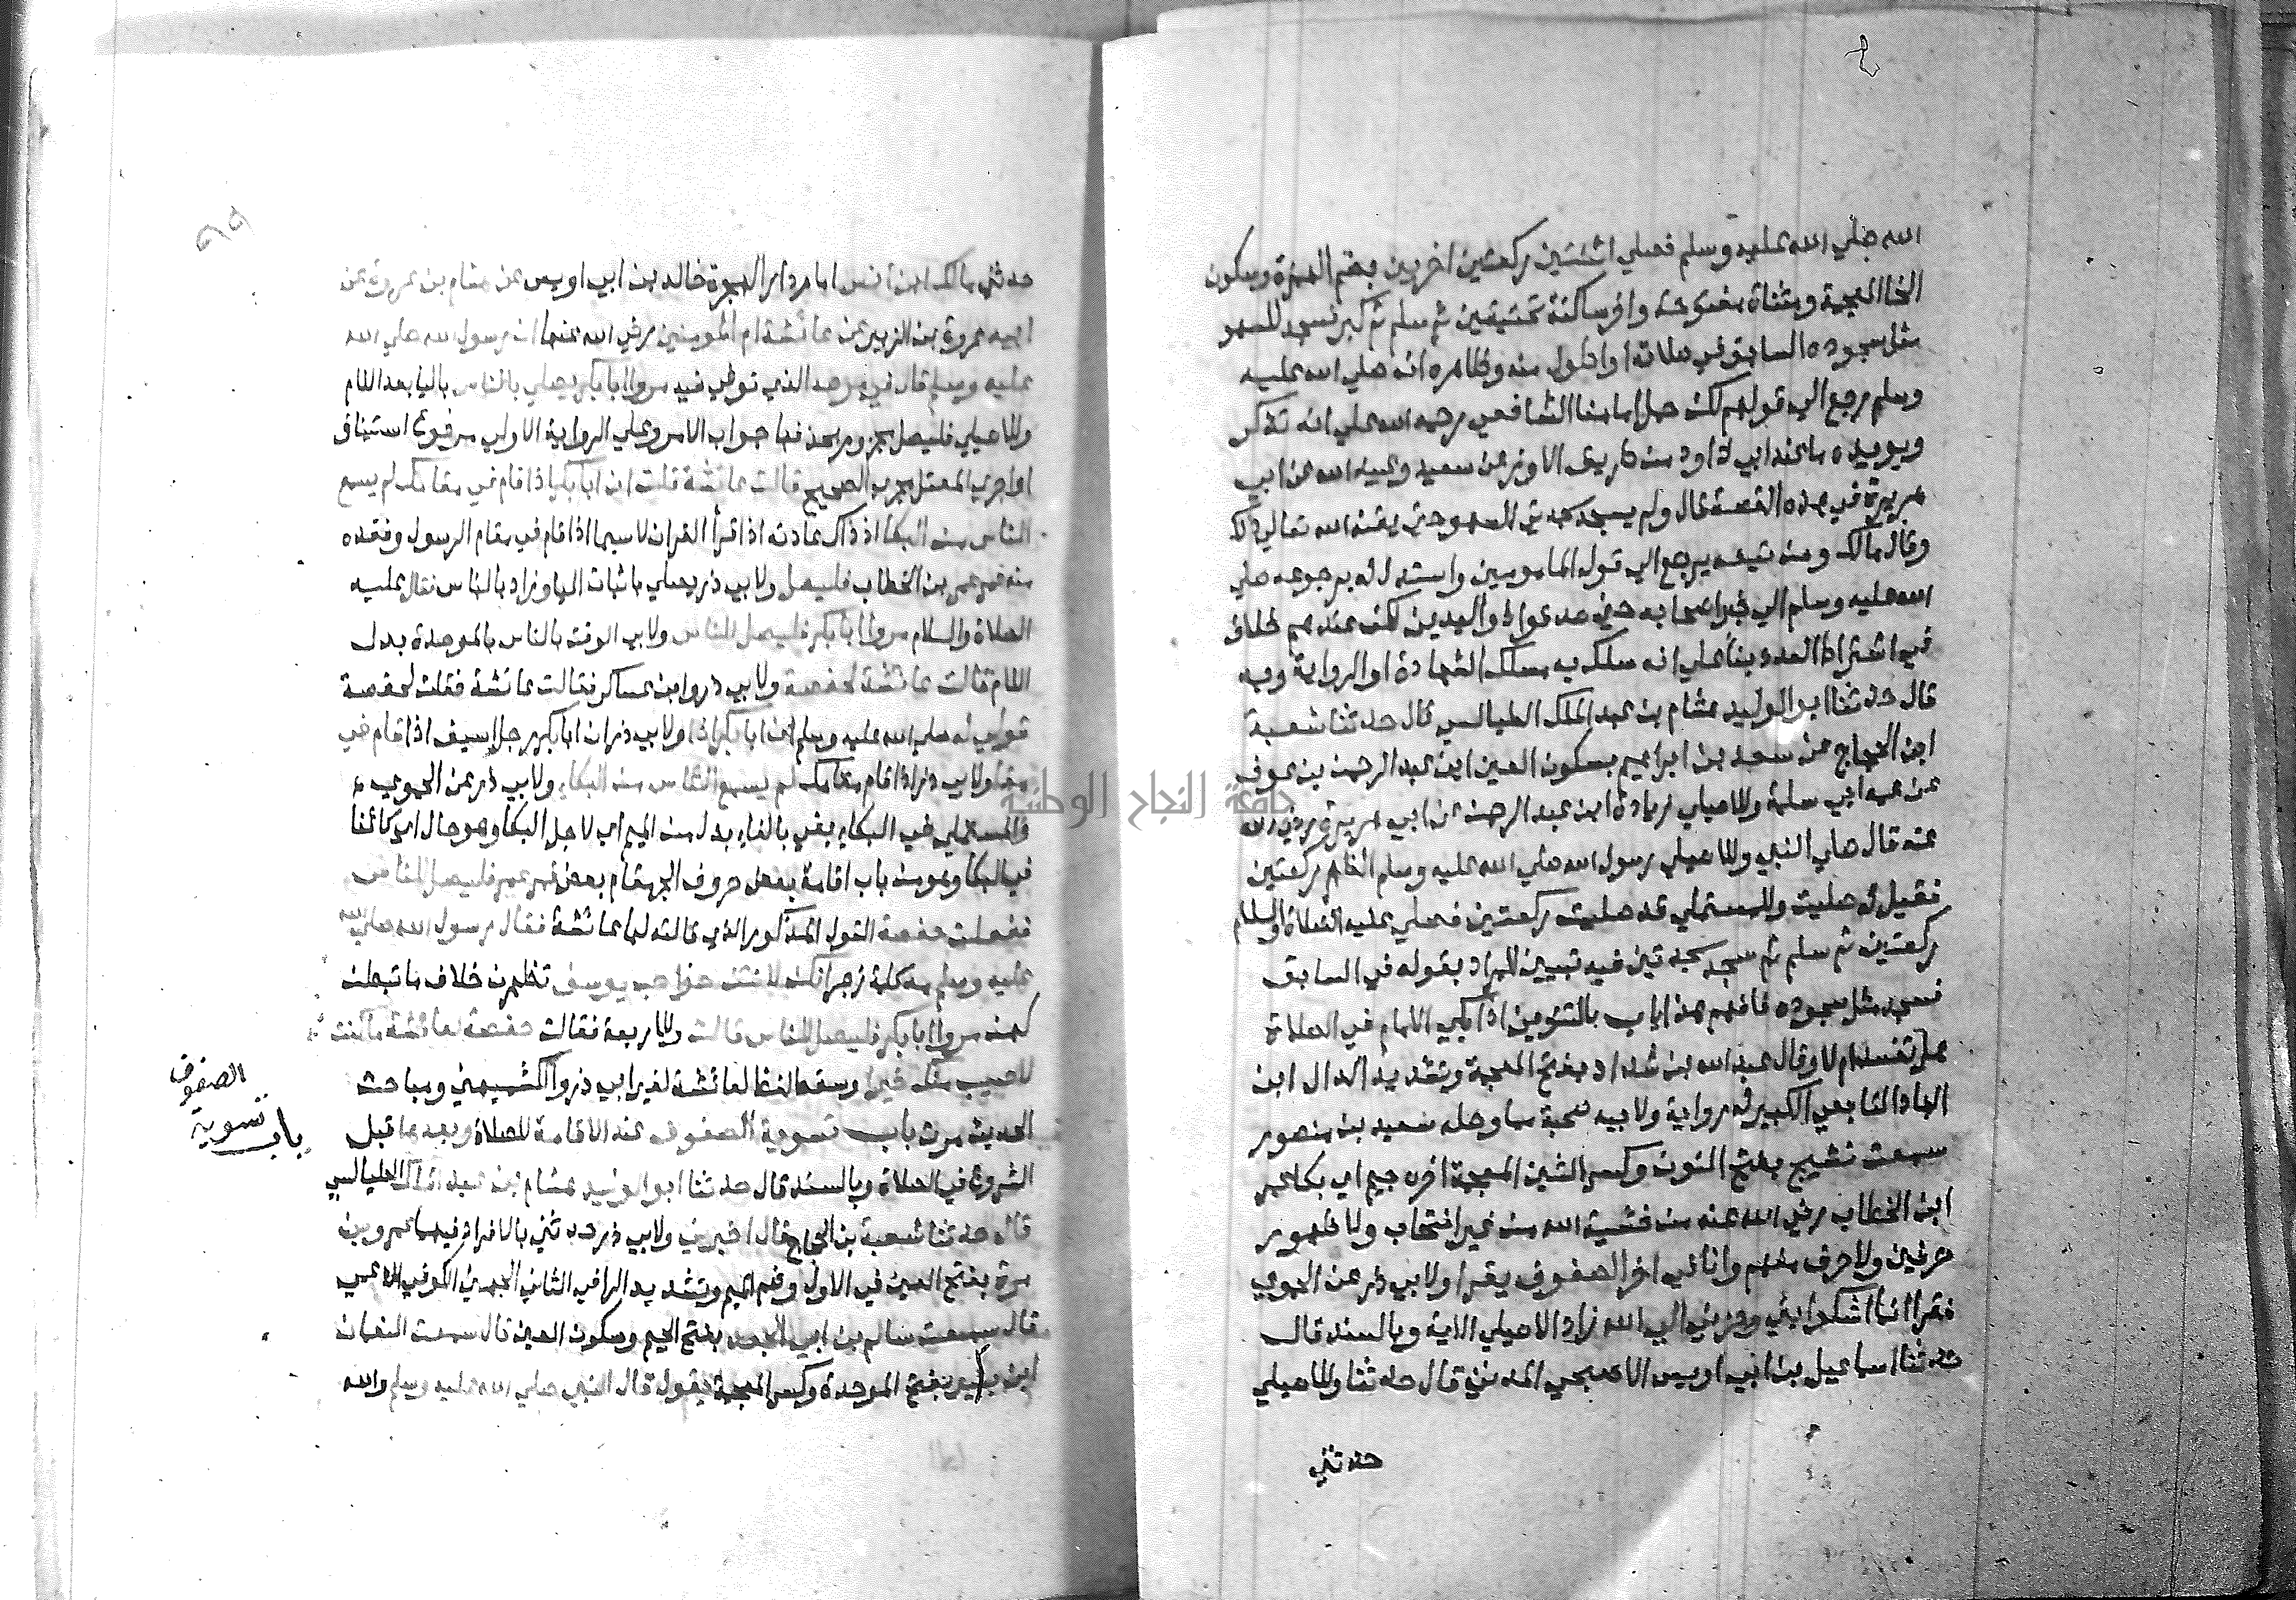 الله صلي الله عليه وسلم فصلي اثنتين ركعتين اخريين بضم الهمزة وسكون
الخا المعجمة ومثناة مفتوحة واخري ساكنة تحتيتين ثم سلم ثم كبر فسجد للسهو
مثل سجوده السابق في صلاته او اطول منه وظاهره انه صلي الله عليه
وسلم رجع الي قولهم لكن حمل امامنا الشافعي رحمه الله علي انه تذكر
ويويده ما عند ابي داود من طريق الاوزعي عن سعيد وعبيد الله عن ابي
هريرة في هذه القصة قال ولم يسجد سجدتي السهو حتي يقنه الله تعالي ذلك
وقال مالك ومن تبعه يرجع الي قول المامومين واستدل له برجوعه صلي
الله عليه وسلم الي خبر اصحابه حين صدقوا ذا اليدين لكن عندهم خلاف
في اشتراط العدد بنا علي انه سلك به مسلك الشهادة او الرواية وبه
قال حدثنا ابو الوليد هشام بن عبد الملك الطيالسي قال حدثنا شعبة
ابن الحجاج عن سعد بن ابراهيم بسكون العين ابن عبد الرحمن بن عوف
عن عمه ابي سلمة وللاصيلي زيادة ابن عبد الرحمن عن ابي هريرة رضي الله
عنه قال صلي النبي وللاصيلي رسول الله صلي الله عليه وسلم الظهر ركعتين
فقيل له صليت وللمستملي قد صليت ركعتين فصلي عليه الصلاة والسلام
ركعتين ثم سلم ثم سجد سجدتين فيه تبيين المراد بقوله في السابق
فسجد مثل سجوده فافهم هذا باب بالتنوين اذا بكي الامام في الصلاة
هل تفسد ام لا وقال عبد الله بن شداد بفتح المعجمة وتشديد الدال ابن
الهاد التابعي الكبير له رواية ولابيه صحبة مما وصله سعيد بن منصور
سمعت نشيج بفتح النون وكسر الشين المعجمة اخره جيم اي بكا عمر
ابن الخطاب رضي الله عنه من خشية الله من غير انتحاب ولا ظهور
حرفين ولا حرف مفهم وانا في اخر الصفوف يقرا ولابي ذر عن الحموي
فقرا انما اشكوا بثي وحزني الي الله زاد الاصيلي الاية وبالسند قال
حدثنا اسماعيل بن ابي اويس الاصبحي المدني قال حدثنا وللاصيلي
حدثني
حدثني مالك ابن انس امام دار الهجرة خال ابن ابي اويس عن هشام بن عروة عن
ابيه عروة بن الزبير عن عائشة ام المومنين رضي الله عنها ان رسول الله صلي الله
عليه وسلم قال في مرضه الذي توفي فيه مروا ابا بكر يصلي بالناس باليا بعد اللام
وللاصيلي فليصل مجزوم بحذفها جواب الامر وعلي الرواية الاولي مرفوع استينافا
او اجري المعتل مجري الصحيح قالت عائشة قلت ان ابا بكر اذا قام في مقامك لم يسمع
الناس من البكا اذ ذاك عادته اذا قرأ القران لا سيما اذا قام في مقام الرسول وفقده
منه فمر عمر بن الخطاب فليصل ولابي ذر يصلي باثبات اليا وزاد بالناس فقال عليه
الصلاة والسلام مروا ابا بكر فليصل للناس ولابي الوقت بالناس بالموحدة بدل
اللام قالت عائشة لحفصة ولابي ذر وابن عساكر فقالت عائشة فقلت لحفصة
قولي له صلي الله عليه وسلم ان ابا بكر اذا ولابي ذر ان ابا بكر رجل اسيف اذا قام في
مقا ولابي ذر اذا قام مقامك لم يسمع الناس من البكاء ولابي ذر عن الحموي
والمستملي في البكاء بفي بالفاء بدل من الميم اي لاجل البكا وهو حال اي كائنا
في البكا وهو من باب اقامة بعض حروف الجر مقام بعض فمر عمر فليصل للناس
ففعلت حفصة القول المذكور الذي قالته لها عائشة فقال رسول الله صلي الله
عليه وسلم مه كلمة زجر انكن لانتن صواحب يوسف تظهرن خلاف ما تبطن
كهن مروا ابا بكر فليصل للناس قالت وللاربعة فقالت حفصة لعائشة ما كنت
لاصيب منك خيرا وسقط لفظ لعائشة لغير ابي ذر والكشميهني ومباحث
الحديث مرت باب تسوية الصفوف عند الاقامة للصلاة وبعدها قبل
الشروع في الصلاة وبالسند قال حدثنا ابو الوليد هشام بن عبد الملك الطيالسي
قال حدثنا شعبة بن الحجاج قال اخبرني ولابي ذر حدثني بالافراد فيهما عمرو بن
مرة بفتح العين في الاول وضم الميم وتشديد الرا في الثاني الجهني الكوفي الاعمي
قال سمعت سالم بن ابي الجعد بفتح الجيم وسكون العين قال سمعت النعمان
ابن بشير بفتح الموحدة وكسر المعجمة يقول قال النبي صلي الله عليه وسلم والله
باب تسوية الصفوف
جامعة النجاح الوطنية